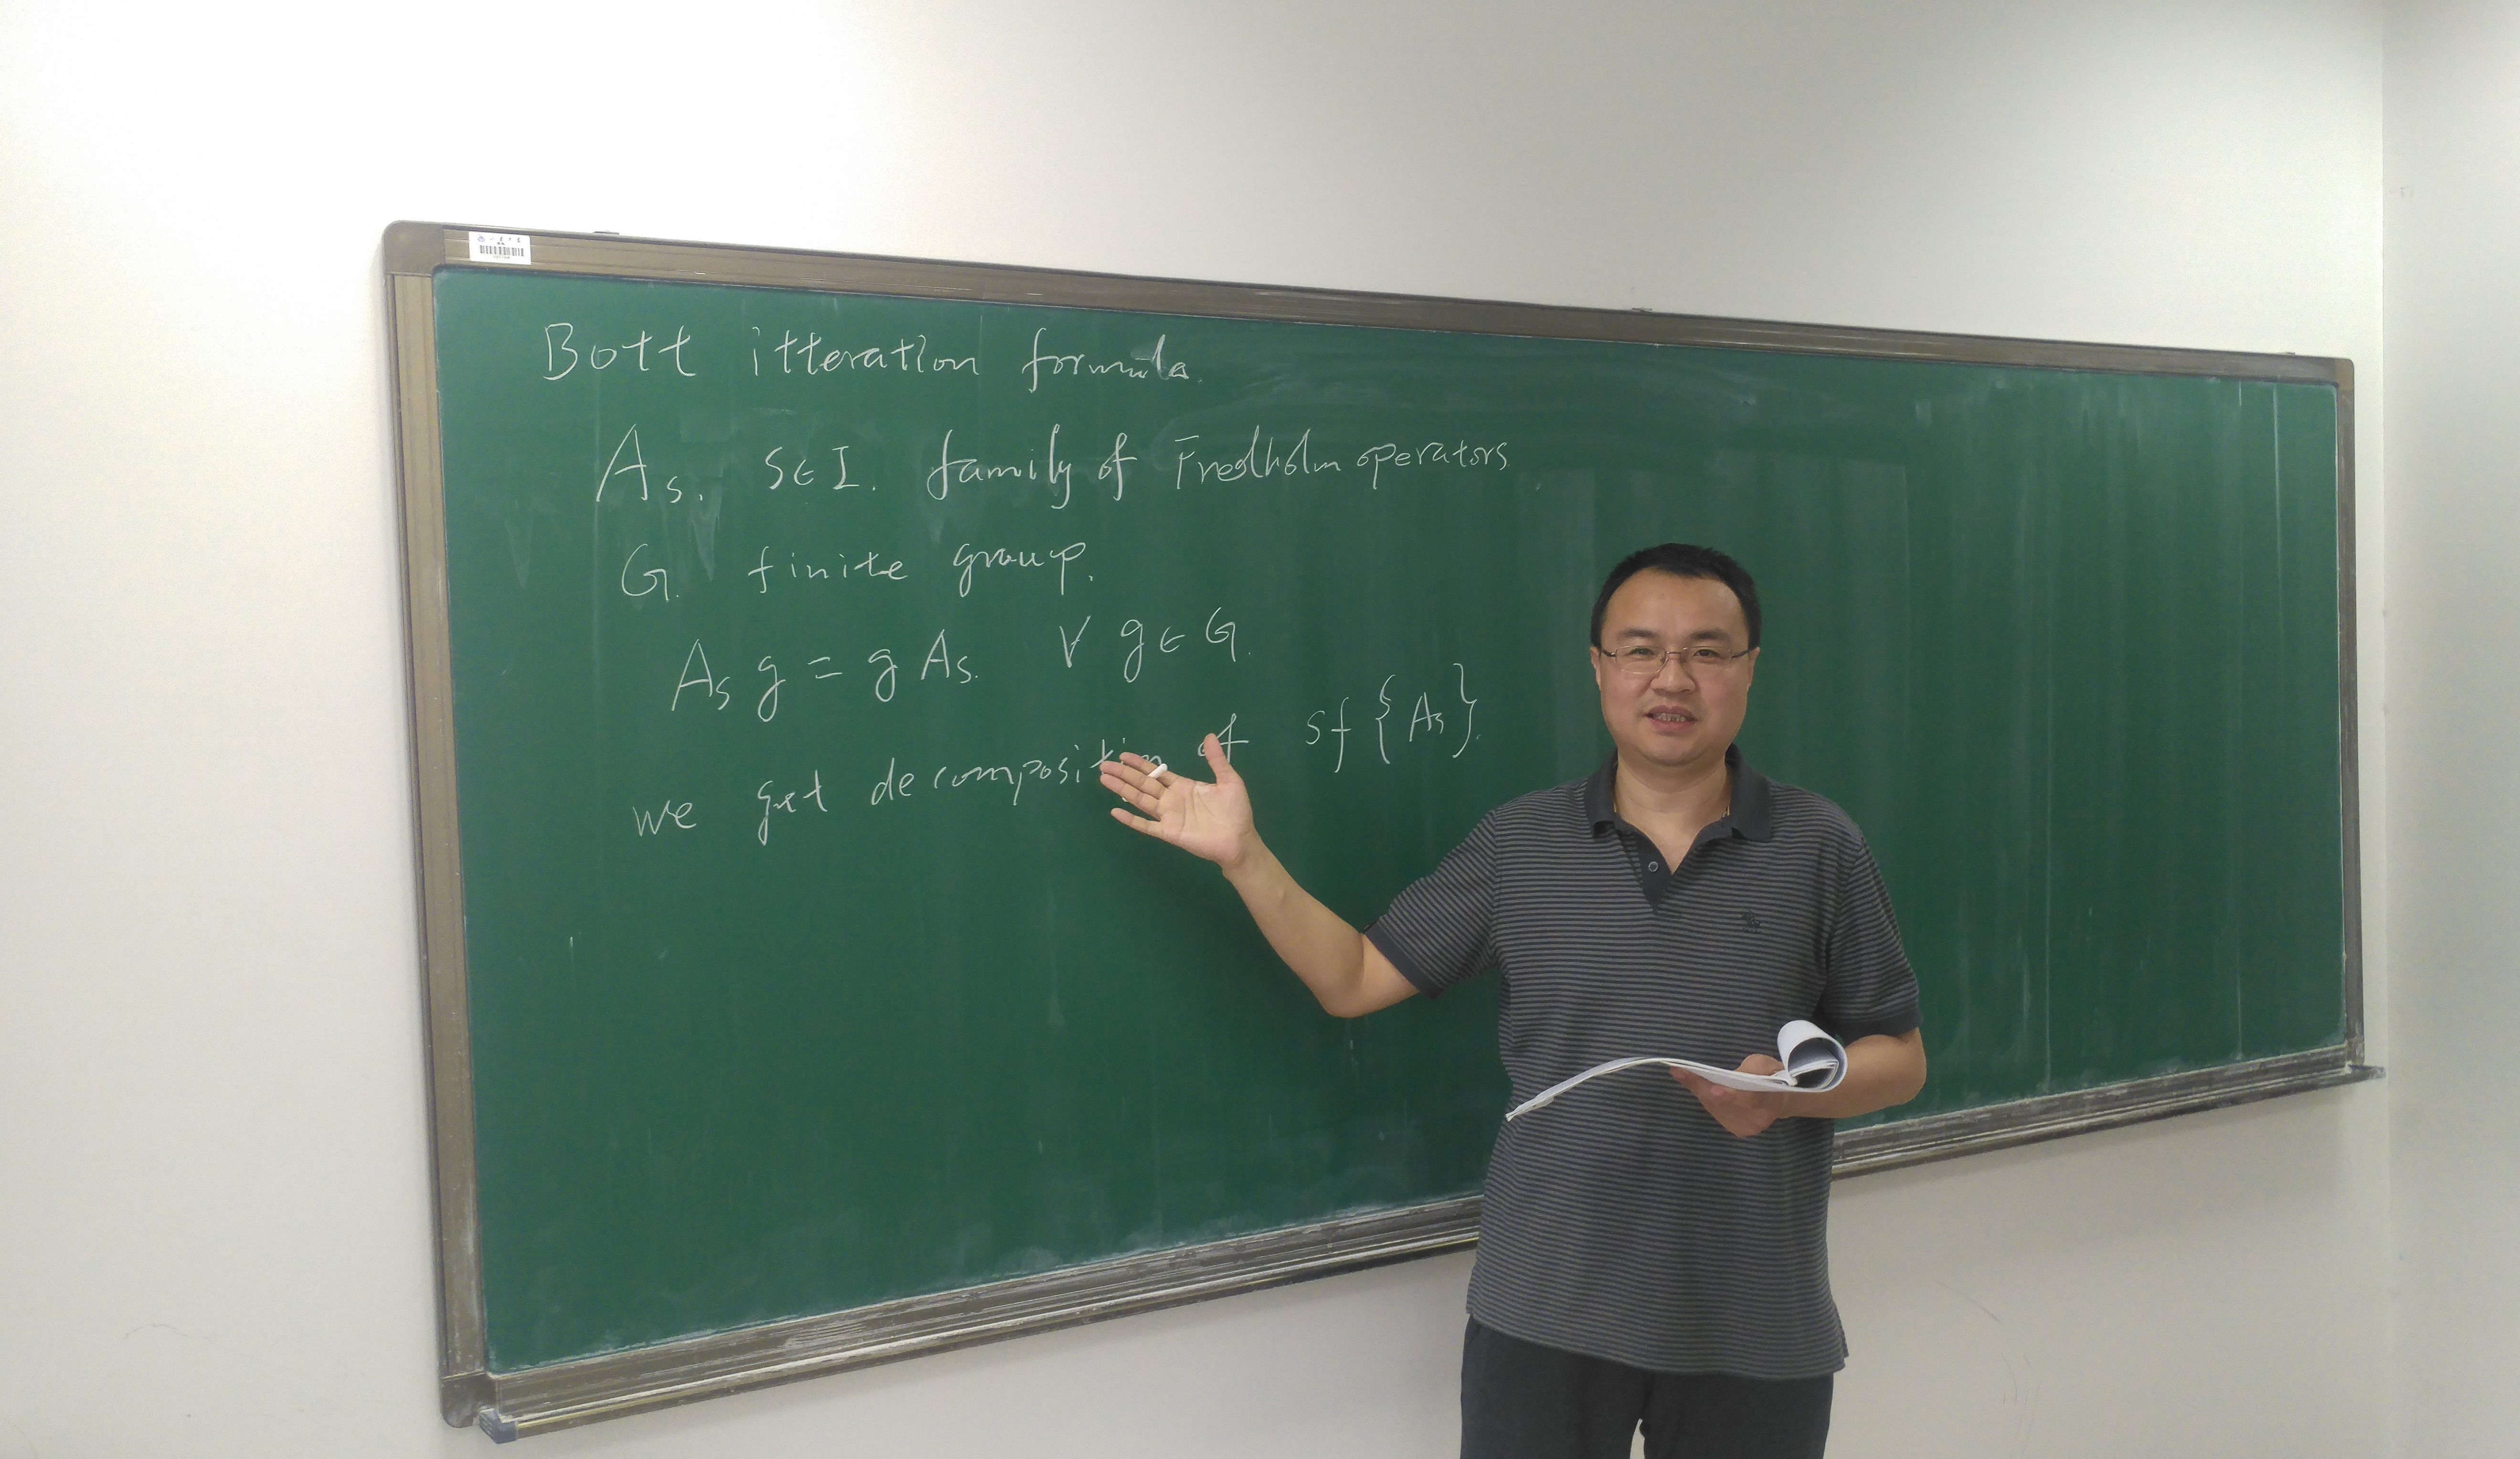 Bott itteration formula.
As. s∈I. family of Fredholm operators.
G. finite group.
As g = g As. ∀ g∈G.
we get decomposition of sf{As}.